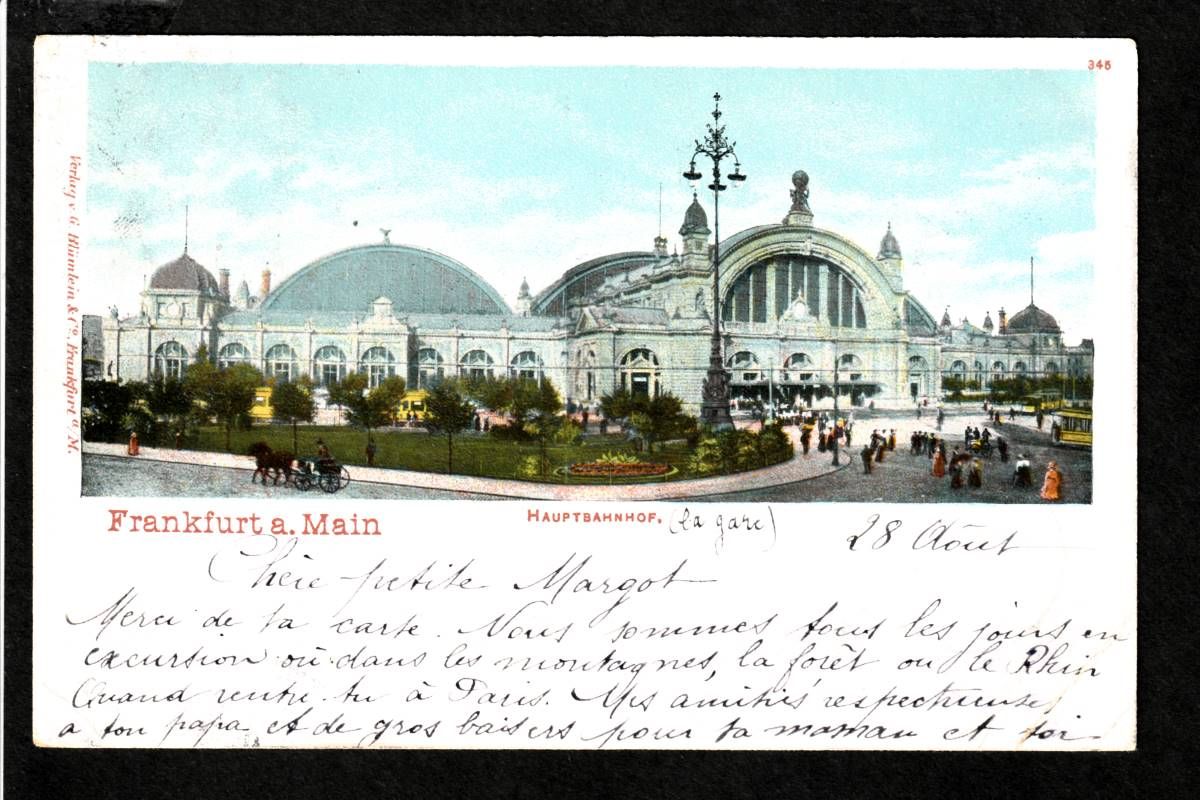 346
Verlag v. G. Blümlein & Co., Frankfurt a. M.
Frankfurt a. Main
HAUPTBAHNHOF. (la gare)
28 Août
Chère petite Margot
Merci de ta carte. Nous sommes tous les jours en
excursion où dans les montagnes, la forêt ou le Rhin
Quand rentre-tu à Paris. Mes amitiés respectueuses
a ton papa et de gros baisers pour ta maman et toi